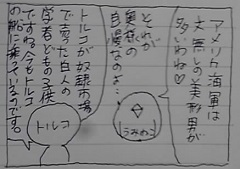 アメリカ海軍は
大無しの美形男が
多いわね♡
それが
奥様の
自慢なのよ…
うみねこ
トルコが奴隷市場
で売った白人の
学者どもの子供
ですね。今もトルコ
の船に乗っているのです。
トルコ